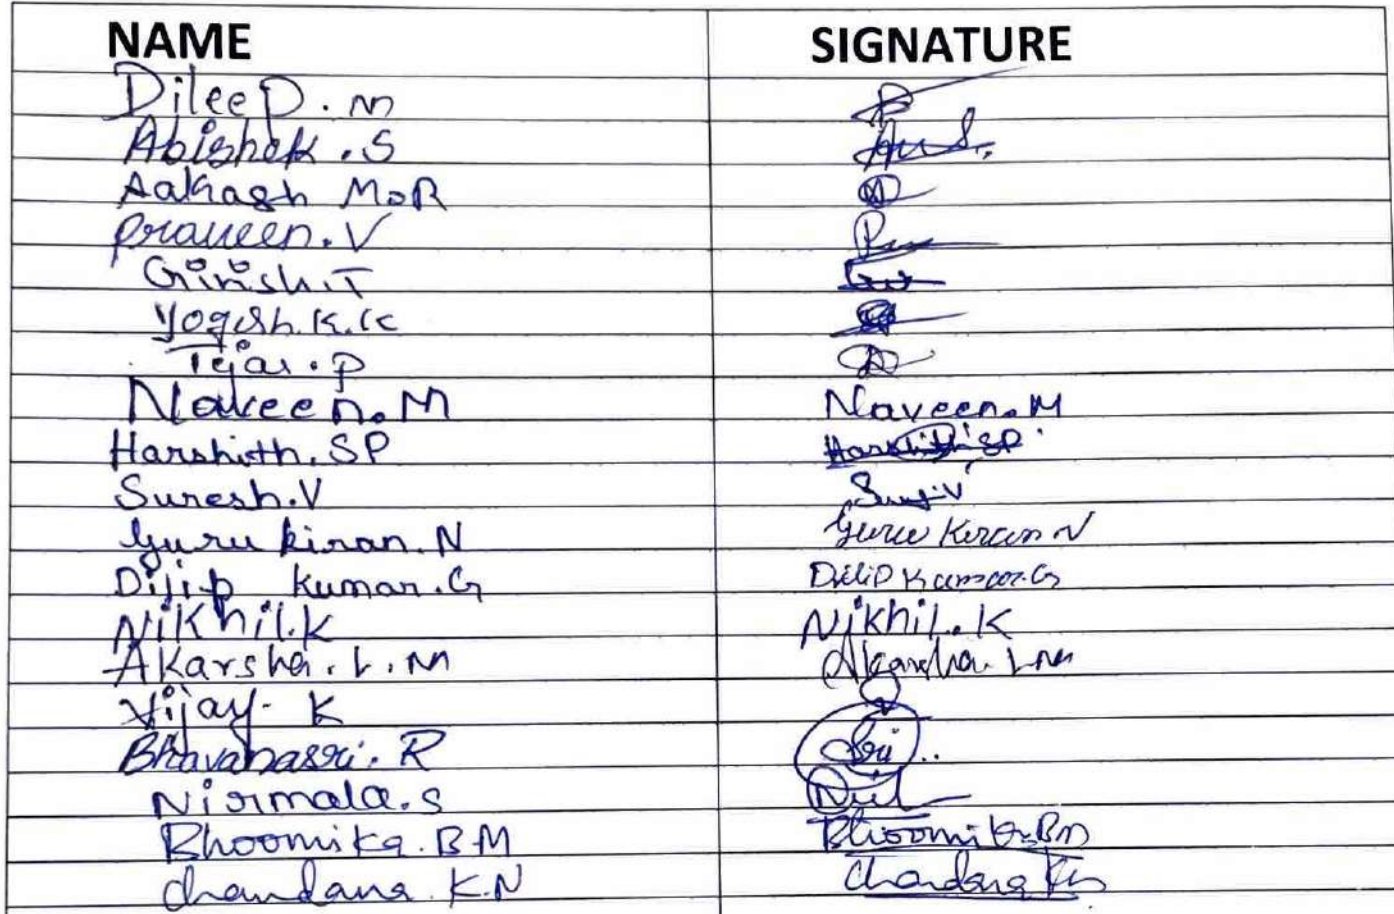 NAME SIGNATURE
DileeP.m
Abishek.S
Aakash M.R
Praveen.V
Girish.T
Yogish.K.K
Tejas.P
Naveen.M Naveen.M
Harshith.SP Harshith SP
Suresh.V
Guru kiran.N Guru Kiran N
Dilip Kumar.G Dilip Kumar.G
Nikhil.K Nikhil.K
Akarsha.L.M Akarsha.L.M
Vijay.K
Bhavanassri.R Sri..
Nirmala.S
Bhoomika.BM Bhoomika.BM
Chandana.K.N Chandana KN